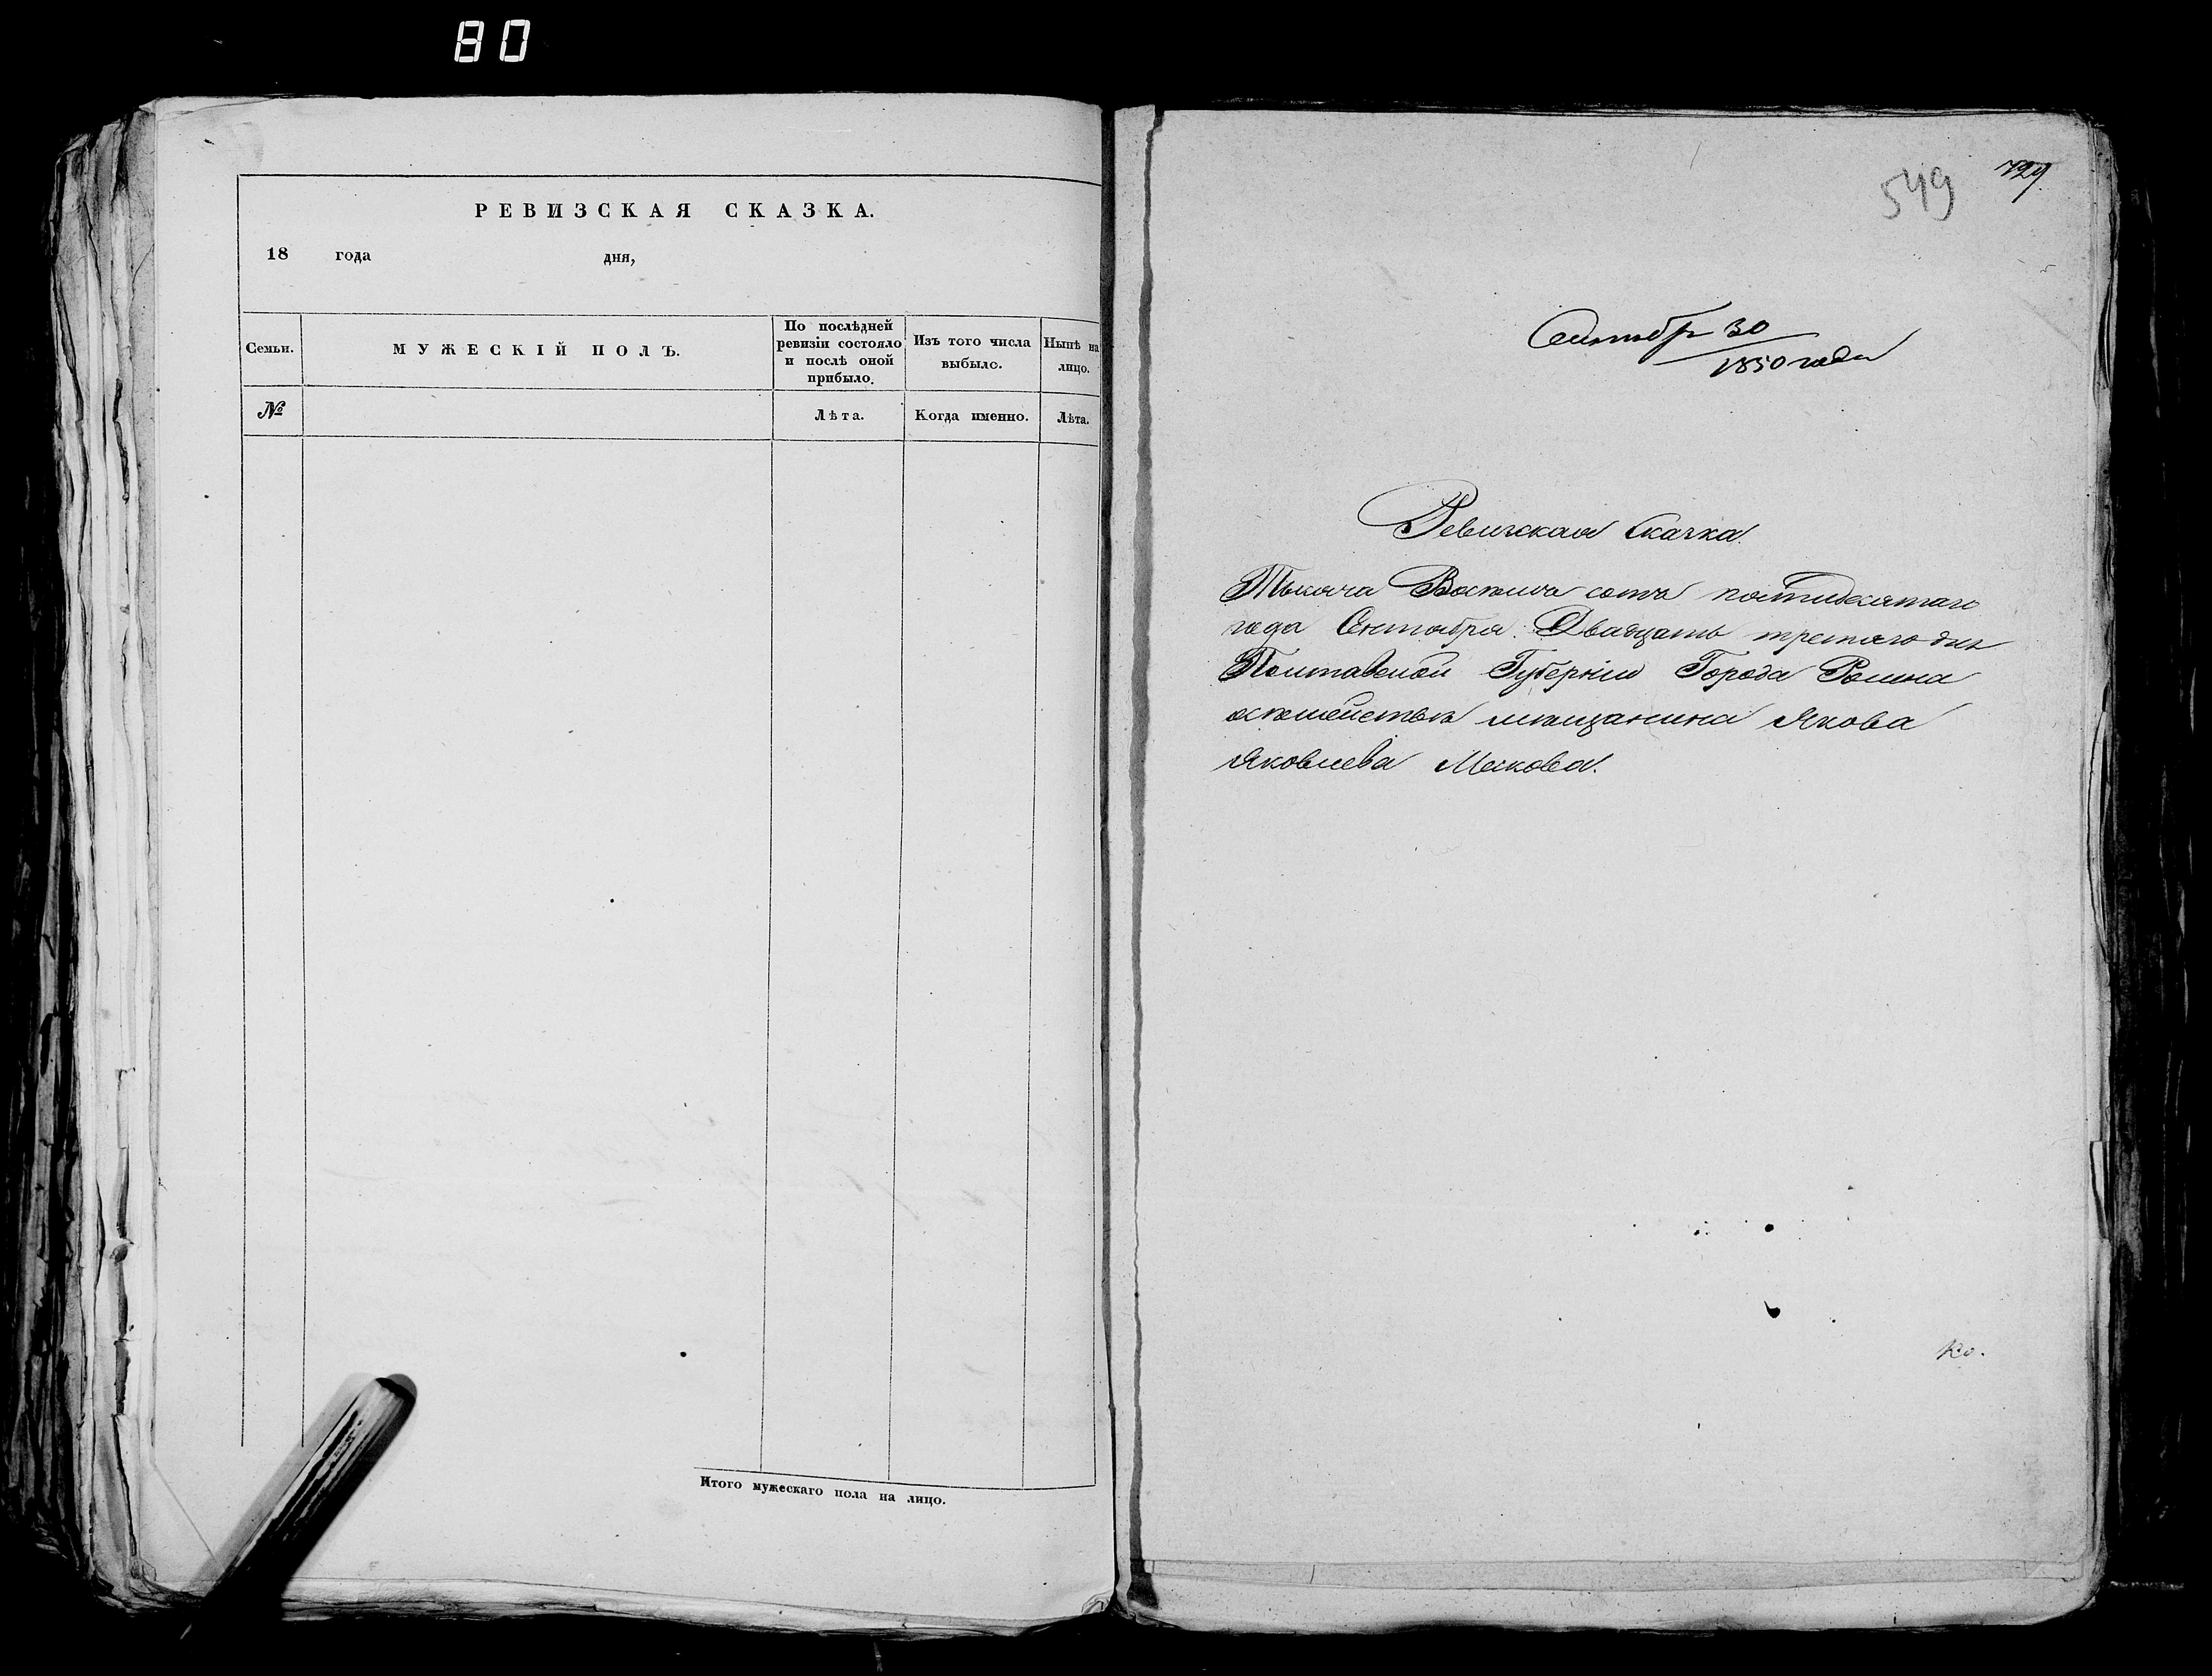 80
РЕВИЗСКАЯ СКАЗКА.
18 года дня,
Семьи.
МУЖЕСКІЙ ПОЛЪ.
По послѣдней ревизіи состояло и послѣ оной прибыло.
Изъ того числа выбыло.
Нынѣ на лицо.
№
Лѣта.
Когда именно.
Лѣта.
Итого мужескаго пола на лицо.
549 729
30
1850 года
Ревизская Сказка.
сотъ
года Двадцать третьяго дня
Полтавской Губерніи Города
мещанина Якова
Яковлева